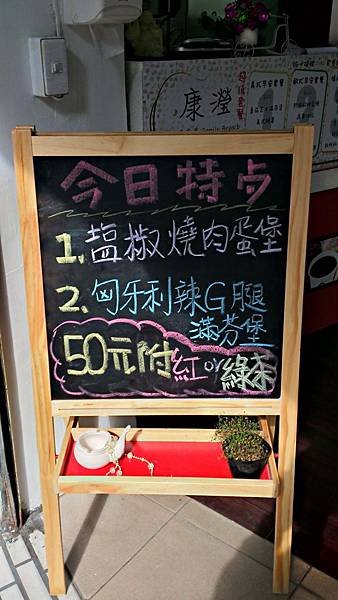 康瀅
今日特点
1.塩椒燒肉蛋堡
2.匈牙利辣G腿
滿芬堡
50元附紅or綠茶